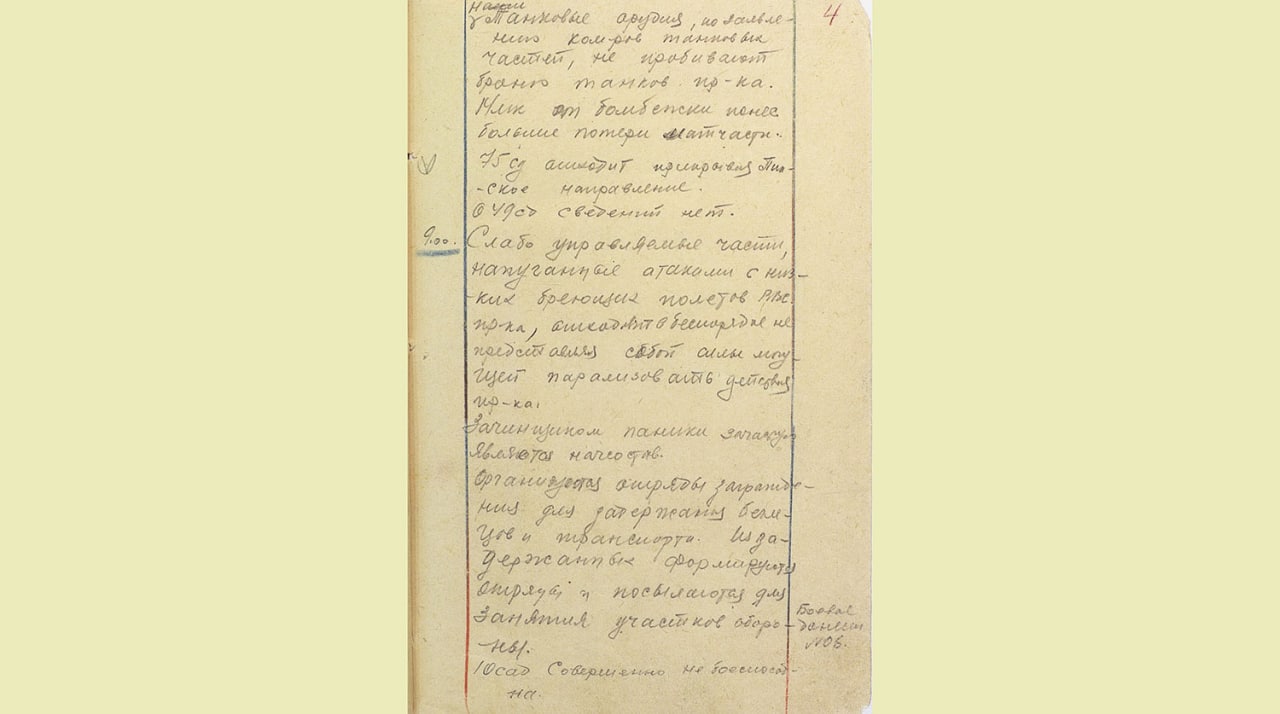 наши
4
танковые орудия, по заявле-
нию ком-ров танковых
частей, не пробивают
броню танков пр-ка.
14мк от бомбежки понес
большие потери матчасти.
75сд отходит прикрывая Пин-
-ское направление.
О 49сд сведений нет.
9.00.
Слабо управляемые части,
напуганные атаками с низ-
-ких бреющих полетов ВВС
пр-ка, отходят в беспорядке не
представляя собой силы могу-
щей парализовать действия
пр-ка.
Зачинщиком паники зачастую
является начсостав.
Организуются отряды загражде-
ния для задержания бегле-
цов и транспорта. Из за-
держанных формируются
отряды и посылаются для
занятия участков оборо-
-ны.
Боевое
донесен
№6.
10сад совершенно не боеспособ-
на.